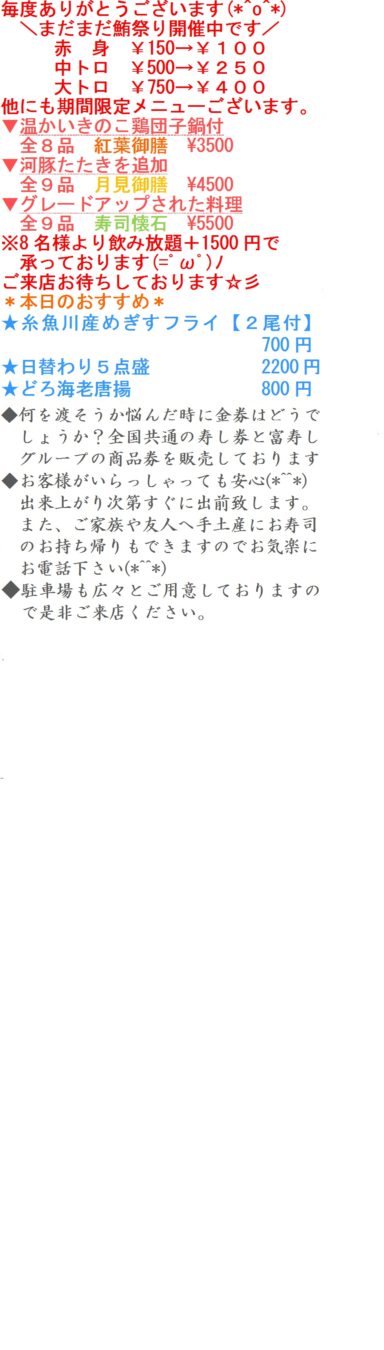 毎度ありがとうございます(*^o^*)
＼まだまだ鮪祭り開催中です／
赤　身　￥150→￥１００
中トロ　￥500→￥２５０
大トロ　￥750→￥４００
他にも期間限定メニューございます。
▼温かいきのこ鶏団子鍋付
全８品　紅葉御膳　¥3500
▼河豚たたきを追加
全９品　月見御膳　¥4500
▼グレードアップされた料理
全９品　寿司懐石　¥5500
※8名様より飲み放題＋1500円で
承っております(=ﾟωﾟ)ﾉ
ご来店お待ちしております☆彡
＊本日のおすすめ＊
★糸魚川産めぎすフライ【２尾付】
700円
★日替わり５点盛　2200円
★どろ海老唐揚　800円
◆何を渡そうか悩んだ時に金券はどうで
しょうか？全国共通の寿し券と富寿し
グループの商品券を販売しております
◆お客様がいらっしゃっても安心(*^^*)
出来上がり次第すぐに出前致します。
また、ご家族や友人へ手土産にお寿司
のお持ち帰りもできますのでお気楽に
お電話下さい(*^^*)
◆駐車場も広々とご用意しておりますの
で是非ご来店ください。